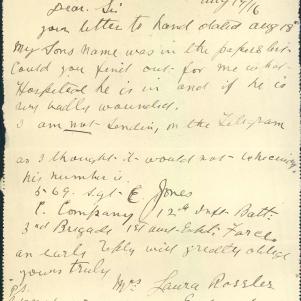 Aug 19/16
Dear. Sir
your letter to hand dated Aug 18th
My Sons name was in the paper last
Could you find out for me what
Hospital he is in and if he is
very badly wounded.
I am not sending on the Telegram
as I thought it would not
his number is.
569. Sgt E Jones
C. Company 12th Inft Batt.
3rd Brigade 1st Aust. Force
an early reply will greatly oblige
yours truly
Mrs Laura Rossler
P.S.